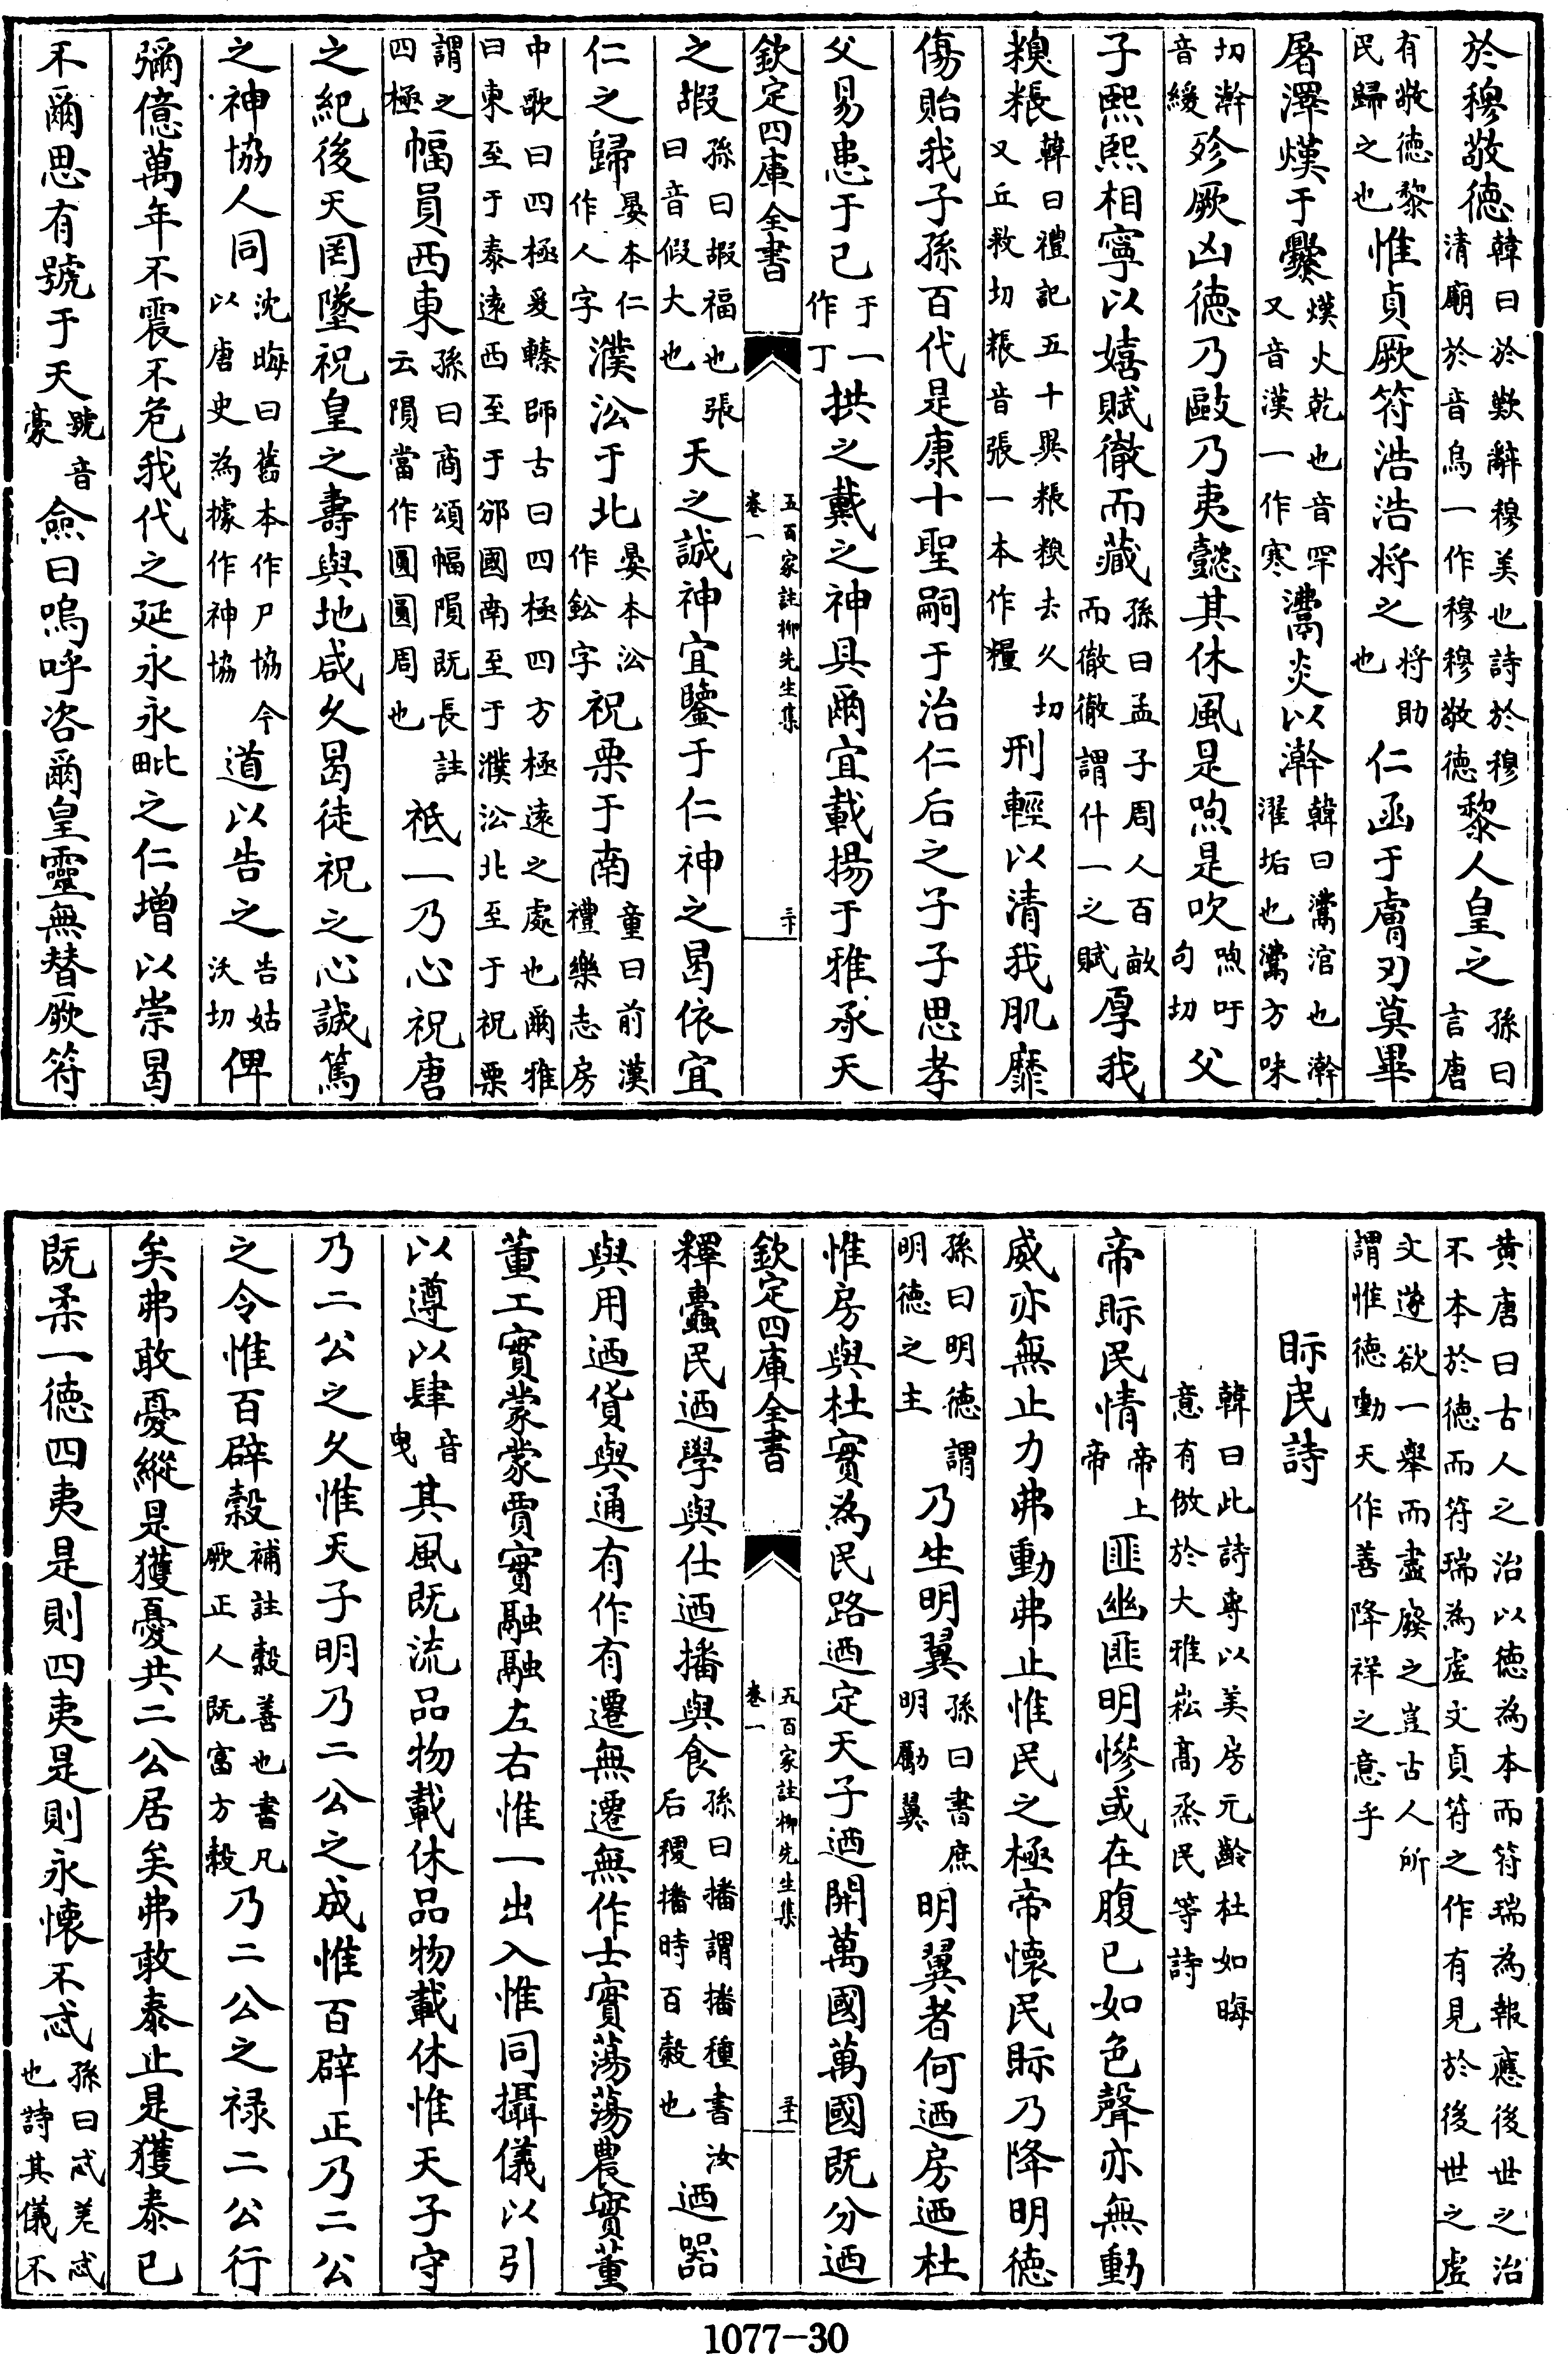 於穆敬德韓曰於歎辭穆美也詩於穆清廟於音烏一作穆穆敬德黎人皇之孫曰言唐
有敬德黎民歸之也惟貞厥符浩浩將之將助也仁函于膚刃莫畢
屠澤熯于爨熯火乾也音罕又音漢一作寒灊炎以澣韓曰灊涫也澣濯垢也灊方味
切澣音緩殄厥凶德乃敺乃夷懿其休風是喣是吹喣吁句切父
子熙熙相寧以嬉賦徹而藏孫曰孟子周人百畝而徹徹謂什一之賦厚我
糗粻韓曰禮記五十異粻糗去久切又丘救切粻音張一本作糧刑輕以清我肌靡
傷貽我子孫百代是康十聖嗣于治仁后之子子思孝
父易患于己于一作丁拱之戴之神具爾宜載揚于雅承天
欽定四庫全書 五百家註柳先生集 卷一 三十
之嘏孫曰嘏福也張曰音假大也天之誠神宜鑒于仁神之曷依宜
仁之歸晏本仁作人字濮㳂于北晏本㳂作鈆字祝栗于南童曰前漢禮樂志房
中歌曰四極爰轃師古曰四極四方極遠之處也爾雅曰東至于泰遠西至于邠國南至于濮㳂北至于祝栗
謂之四極幅員西東孫曰商頌幅隕既長註云隕當作圓圓周也祗一乃心祝唐
之紀後天罔墜祝皇之壽與地咸久曷徒祝之心誠篤
之神協人同沈晦曰舊本作尸協今以唐史為據作神協道以告之告姑沃切俾
彌億萬年不震不危我代之延永永毗之仁增以崇曷
不爾思有號于天號音豪僉曰嗚呼咨爾皇靈無替厥符
黄唐曰古人之治以徳為本而符瑞為報應後世之治不本於徳而符瑞為虛文貞符之作有見於後世之虛
文遂欲一舉而盡廢之豈古人所謂惟徳動天作善降祥之意乎
眎民詩
韓曰此詩專以美房元齡杜如晦意有倣於大雅崧高烝民等詩
帝眎民情帝上帝匪幽匪明慘或在腹已如色聲亦無動
威亦無止力弗動弗止惟民之極帝懷民眎乃降明德
孫曰明德謂明德之主乃生明翼孫曰書庶明勵翼明翼者何迺房迺杜
惟房與杜實為民路迺定天子迺開萬國萬國既分迺
欽定四庫全書 五百家註柳先生集 卷一 三十一
釋蠹民迺學與仕迺播與食孫曰播謂播種書汝后稷播時百穀也迺器
與用迺貨與通有作有遷無遷無作士實蕩蕩農實董
董工實蒙蒙賈實融融左右惟一出入惟同攝儀以引
以遵以肆音曳其風既流品物載休品物載休惟天子守
乃二公之久惟天子明乃二公之成惟百辟正乃二公
之令惟百辟穀補註穀善也書凡厥正人既富方穀乃二公之禄二公行
矣弗敢憂縱是獲憂共二公居矣弗敢泰止是獲泰已
既柔一德四夷是則四夷是則永懷不忒孫曰忒差忒也詩其儀不
1077-30